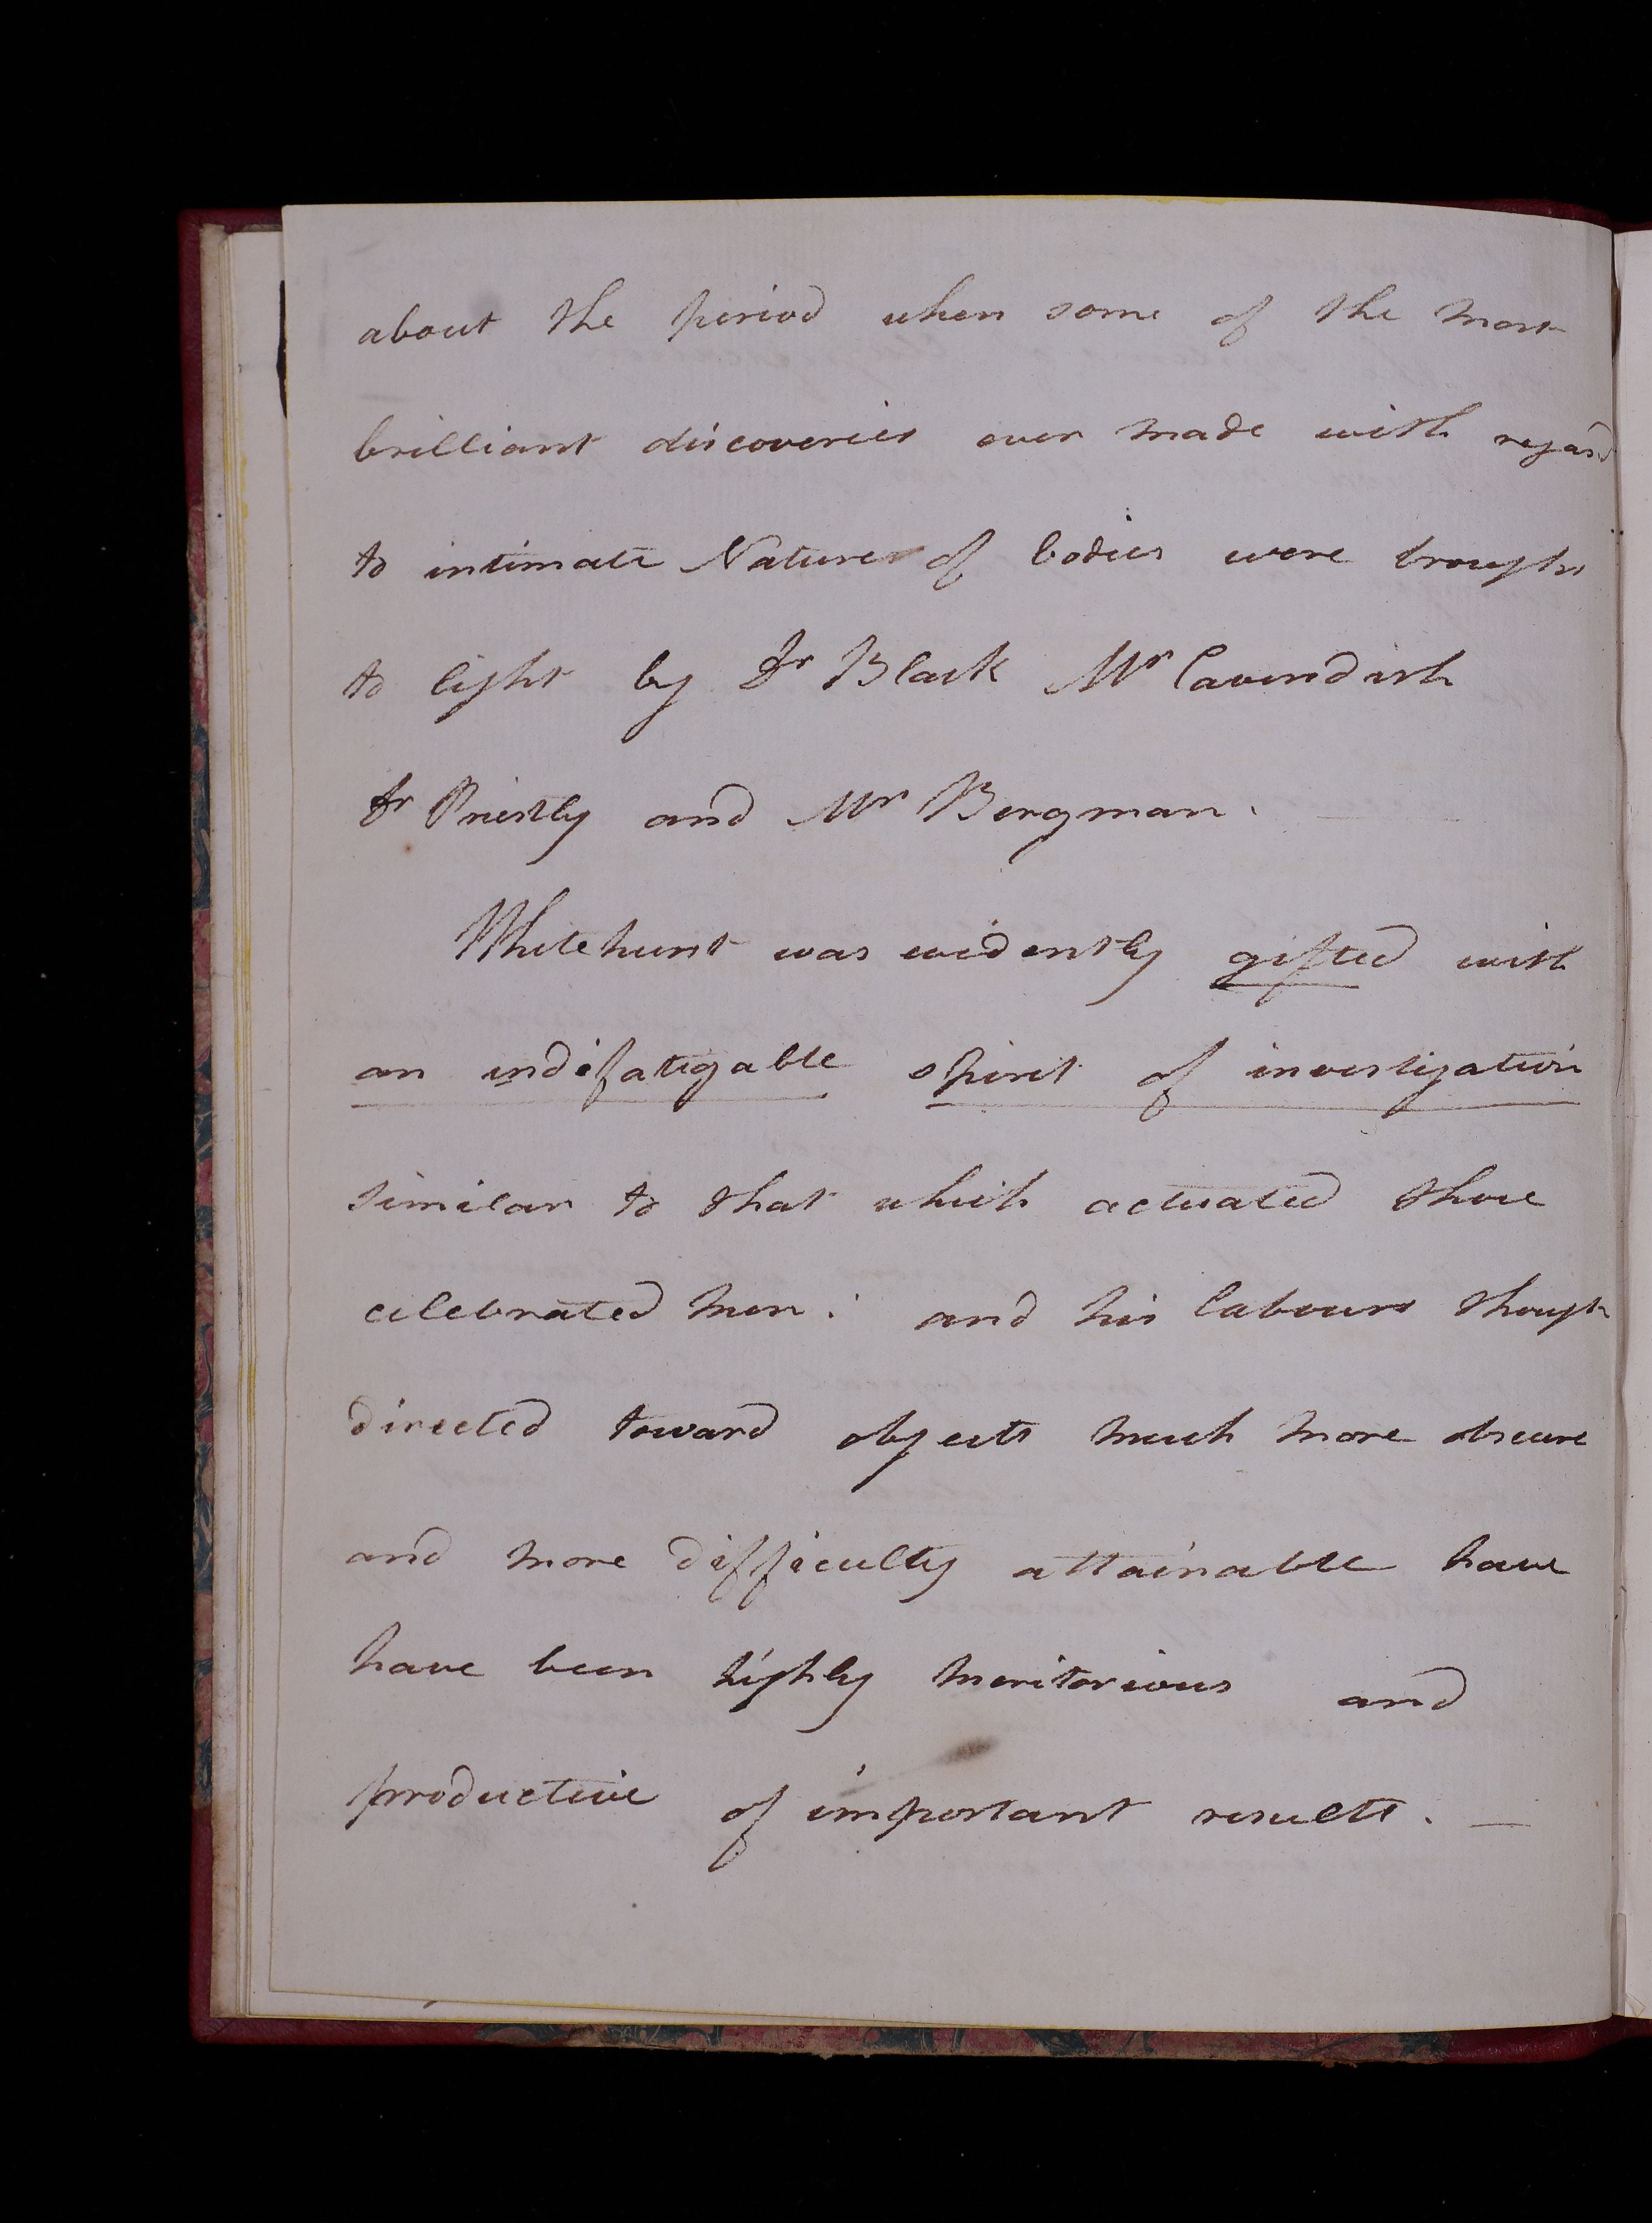 about the period when some of the most
brilliant discoveries ever made with regard
to intimate Nature of bodies were brought
to light by Dr Black Mr Cavendish
Dr Priestly and Mr Bergman.
Whitehurst was evidently gifted with
an indifatigable spirit of investigation
similar to that which actuated those
celebrated men: and his labours though
directed toward objects much more obscure
and more difficulty attainable have
have been highly meritorious and
productive of important results. —